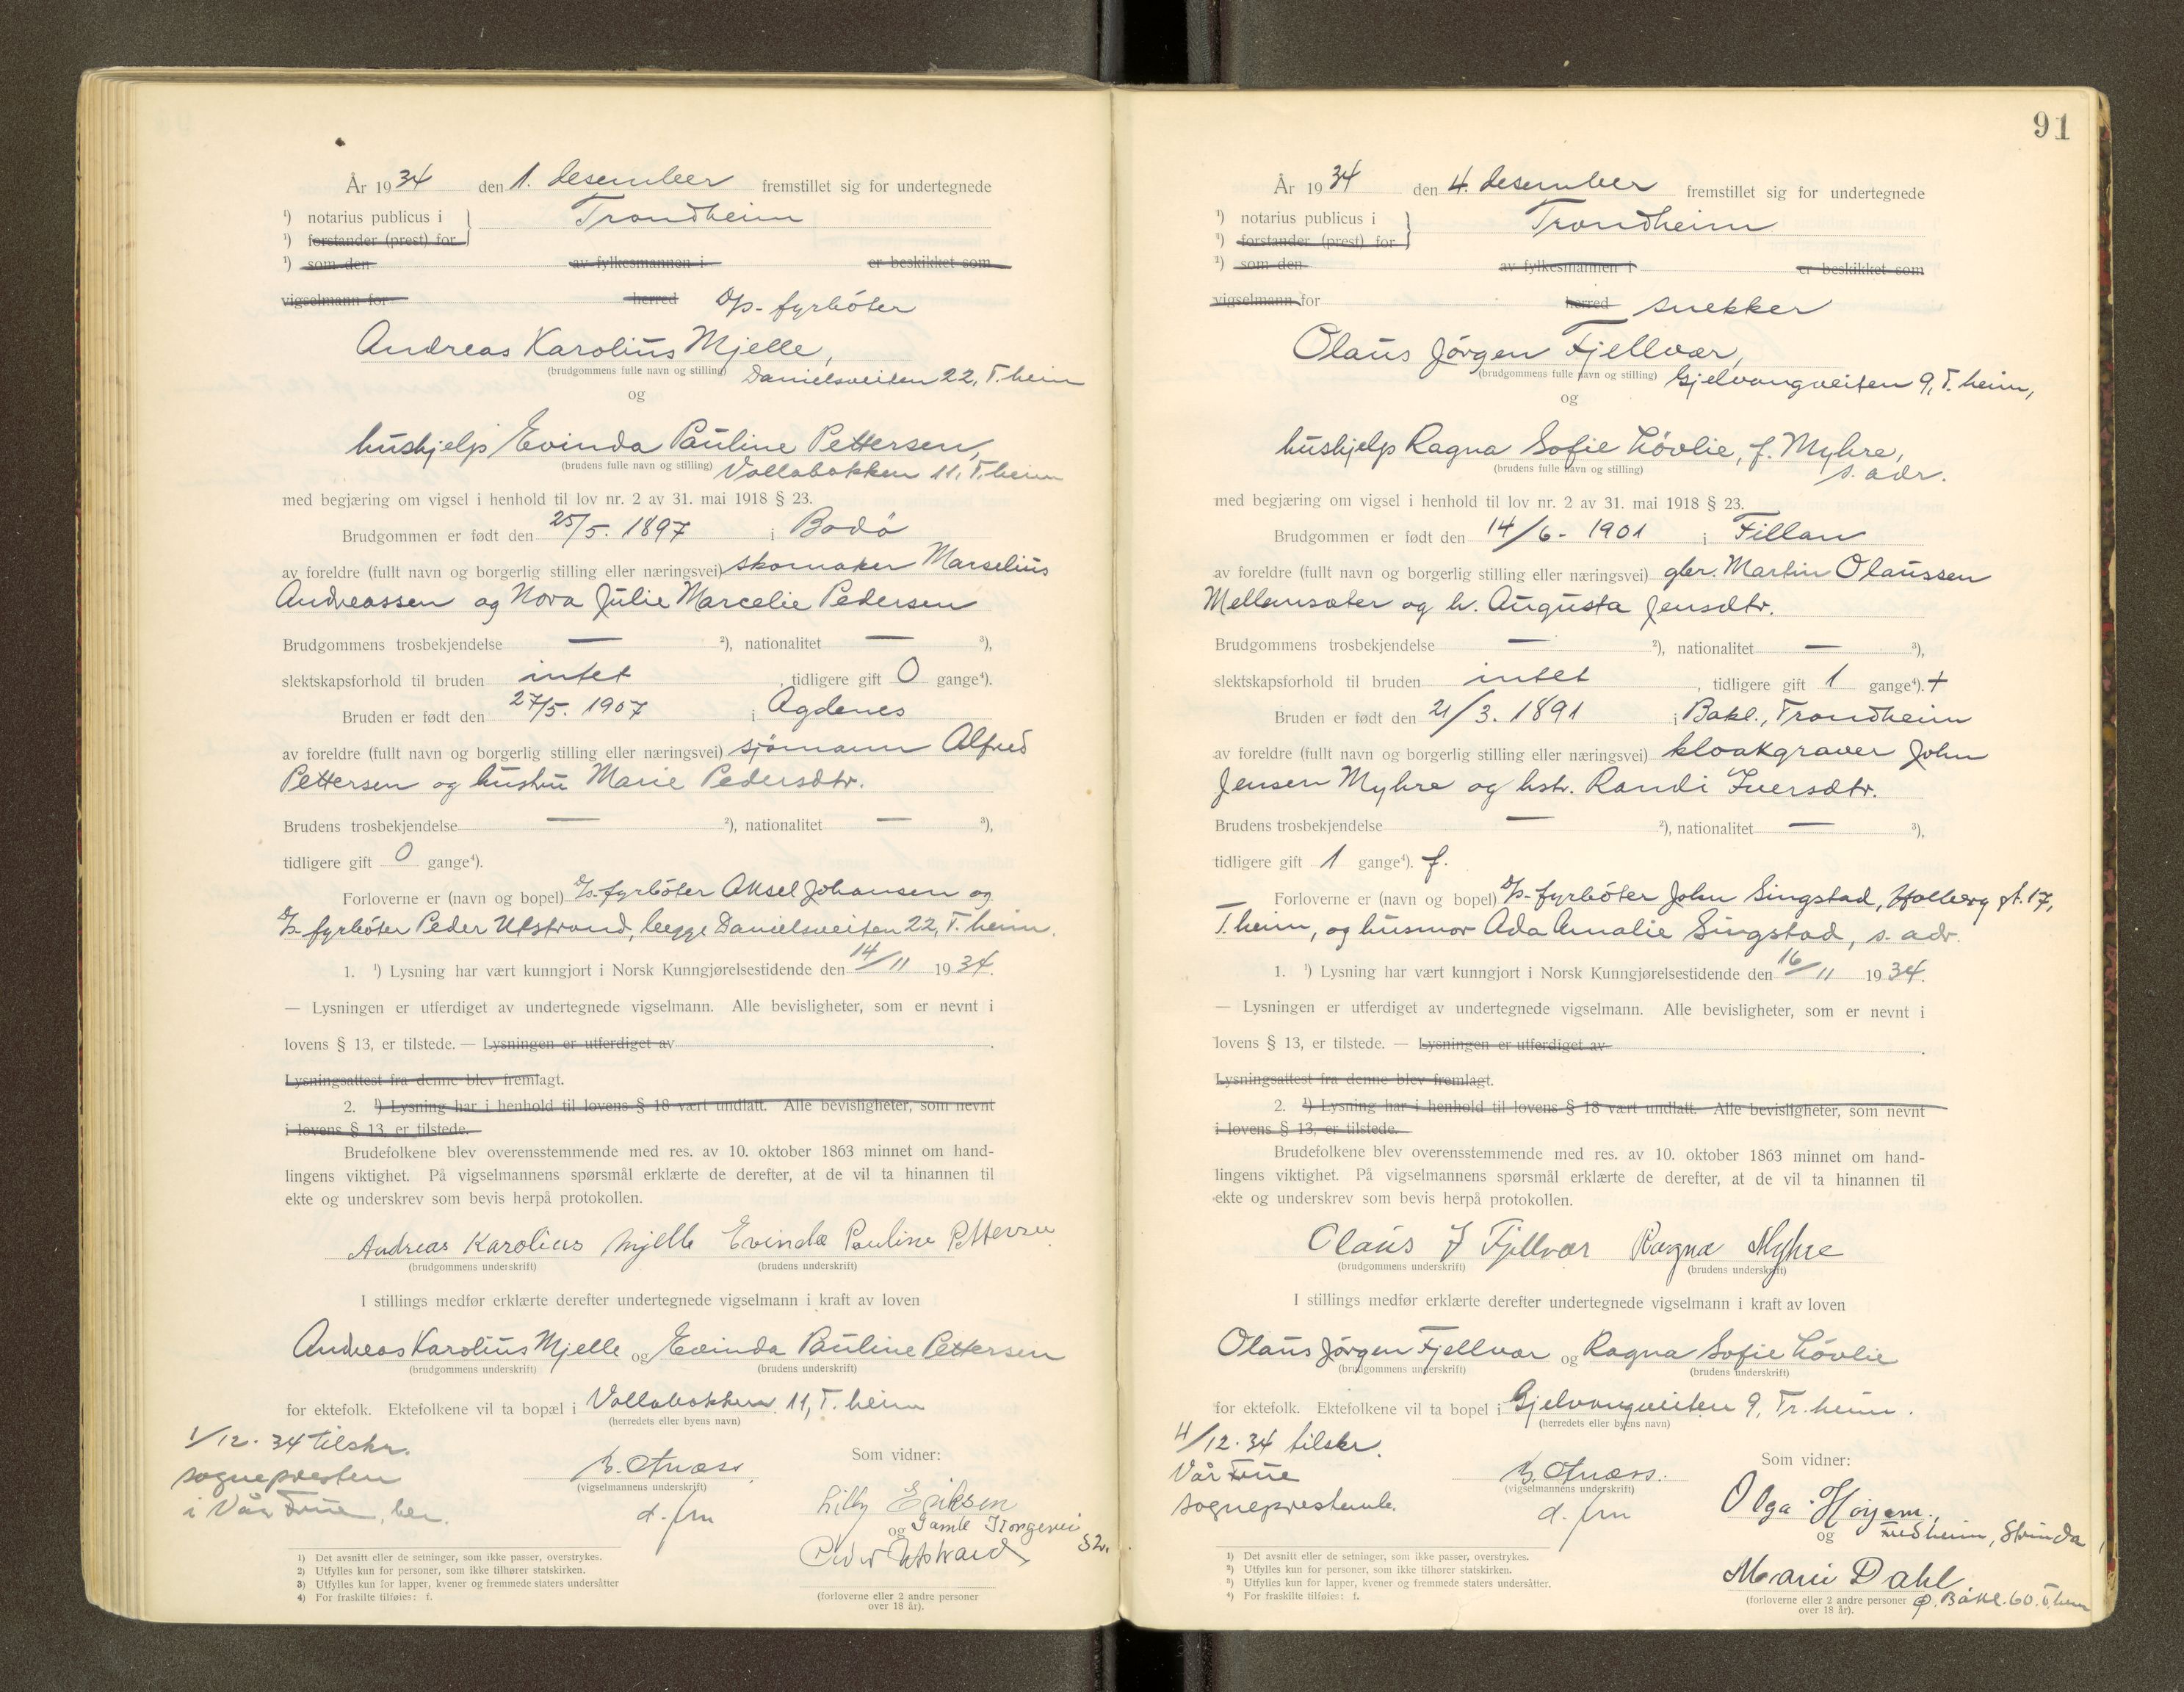 År 1934 den 1. desember fremstillet sig for undertegnede
¹) notarius publicus i Trondheim
¹) forstander (prest) for
¹) som den av fylkesmannen i er beskikket som
vigselmann for herred D/s-fyrbøter
Andreas Karolius Mjelle,
(brudgommens fulle navn og stilling) Danielsveiten 22, T.heim
og
hushjelp Evinda Pauline Pettersen,
(brudens fulle navn og stilling) Vollabakken 11, T.heim
med begjæring om vigsel i henhold til lov nr. 2 av 31. mai 1918 § 23.
Brudgommen er født den 25/5. 1897 i Bodö
av foreldre (fullt navn og borgerlig stilling eller næringsvei) skomaker Marselius
Andreassen og Nora Julie Marcelie Pedersen
Brudgommens trosbekjendelse — ²), nationalitet — ³),
slektskapsforhold til bruden intet , tidligere gift 0 gange⁴).
Bruden er født den 27/5. 1907 i Agdenes
av foreldre (fullt navn og borgerlig stilling eller næringsvei) sjömann Alfred
Pettersen og hustru Marie Pedersdtr.
Brudens trosbekjendelse — ²), nationalitet — ³),
tidligere gift 0 gange⁴).
Forloverne er (navn og bopel) D/s-fyrböter Aksel Johansen og
D/s fyrböter Peder Utstrand, begge Danielsveiten 22, T.heim.
1. ¹) Lysning har vært kunngjort i Norsk Kunngjørelsestidende den 14/11 1934.
— Lysningen er utferdiget av undertegnede vigselmann. Alle bevisligheter, som er nevnt i
lovens § 13, er tilstede. — Lysningen er utferdiget av .
Lysningsattest fra denne blev fremlagt.
2. ¹) Lysning har i henhold til lovens § 18 vært undlatt. Alle bevisligheter, som nevnt
i lovens § 13, er tilstede.
Brudefolkene blev overensstemmende med res. av 10. oktober 1863 minnet om hand-
lingens viktighet. På vigselmannens spørsmål erklærte de derefter, at de vil ta hinannen til
ekte og underskrev som bevis herpå protokollen.
Andreas Karolius Mjelle Evinda Pauline Pettersen
(brudgommens underskrift) (brudens underskrift)
I stillings medfør erklærte derefter undertegnede vigselmann i kraft av loven
Andreas Karolius Mjelle og Evinda Pauline Pettersen
(brudgommens underskrift) (brudens underskrift)
for ektefolk. Ektefolkene vil ta bopæl i Vollabakken 11, T.heim
(herredets eller byens navn)
1/12. 34 tilskr.
sognepresten
i Vår Frue, her.
(vigselmannens underskrift)
d. fm
Som vidner:
Lilly Eriksen
og Gamle Kongevei 32.
Peder Utstrand
(forloverne eller 2 andre personer
over 18 år).
1) Det avsnitt eller de setninger, som ikke passer, overstrykes.
2) Utfylles kun for personer, som ikke tilhører statskirken.
3) Utfylles kun for lapper, kvener og fremmede staters undersåtter
4) For fraskilte tilføies: f.
91
År 1934 den 4. desember fremstillet sig for undertegnede
¹) notarius publicus i Trondheim
¹) forstander (prest) for
¹) som den av fylkesmannen i er beskikket som
vigselmann for herred snekker
Olaus Jörgen Fjellvær,
(brudgommens fulle navn og stilling) Gjelvangveiten 9, T.heim,
og
hushjelp Ragna Sofie Lövlie, f. Myhre,
(brudens fulle navn og stilling) s. adr.
med begjæring om vigsel i henhold til lov nr. 2 av 31. mai 1918 § 23.
Brudgommen er født den 14/6 - 1901 i Fillan
av foreldre (fullt navn og borgerlig stilling eller næringsvei) gbr. Martin Olaussen
Mellemsæter og h. Augusta Jensdtr.
Brudgommens trosbekjendelse — ²), nationalitet — ³),
slektskapsforhold til bruden intet , tidligere gift 1 gange⁴). +
Bruden er født den 21/3. 1891 i Bakl., Trondheim
av foreldre (fullt navn og borgerlig stilling eller næringsvei) kloakgraver John
Jensen Myhre og hstr. Randi Iversdtr.
Brudens trosbekjendelse — ²), nationalitet — ³),
tidligere gift 1 gange⁴). f.
Forloverne er (navn og bopel) D/s-fyrböter John Singstad, Holberg gt. 17,
T.heim, og husmor Ada Amalie Singstad, s. adr.
1. ¹) Lysning har vært kunngjort i Norsk Kunngjørelsestidende den 16/11 1934.
— Lysningen er utferdiget av undertegnede vigselmann. Alle bevisligheter, som er nevnt i
lovens § 13, er tilstede. — Lysningen er utferdiget av .
Lysningsattest fra denne blev fremlagt.
2. ¹) Lysning har i henhold til lovens § 18 vært undlatt. Alle bevisligheter, som nevnt
i lovens § 13, er tilstede.
Brudefolkene blev overensstemmende med res. av 10. oktober 1863 minnet om hand-
lingens viktighet. På vigselmannens spørsmål erklærte de derefter, at de vil ta hinannen til
ekte og underskrev som bevis herpå protokollen.
Olaus J Fjellvær Ragna Myhre
(brudgommens underskrift) (brudens underskrift)
I stillings medfør erklærte derefter undertegnede vigselmann i kraft av loven
Olaus Jörgen Fjellvær og Ragna Sofie Lövlie
(brudgommens underskrift) (brudens underskrift)
for ektefolk. Ektefolkene vil ta bopel i Gjelvangveiten 9, Tr.heim.
(herredets eller byens navn)
4/12. 34 tilskr.
Vår Frue
sogneprestemb.
(vigselmannens underskrift)
d. fm
Som vidner:
Olga Horjem,
og Fredheim, Strinda
Marie Dahl
(forloverne eller 2 andre personer Ø. Bakl. 60. T.heim
over 18 år).
¹) Det avsnitt eller de setninger, som ikke passer, overstrykes.
²) Utfylles kun for personer, som ikke tilhører statskirken.
³) Utfylles kun for lapper, kvener og fremmede staters undersåtter.
⁴) For fraskilte tilføies: f.